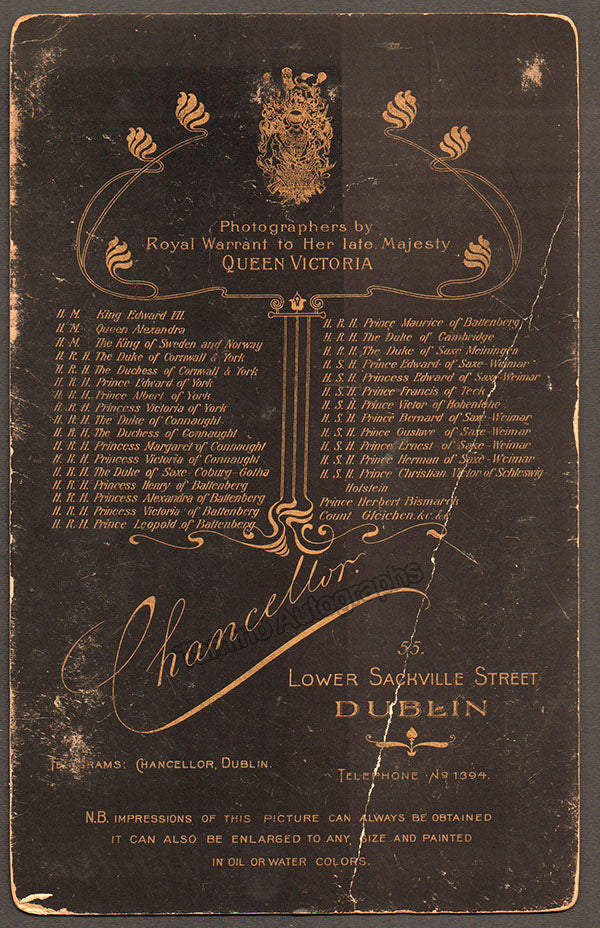 Photographers by
Royal Warrant to Her late Majesty
QUEEN VICTORIA
H. M. King Edward VII.
H. M. Queen Alexandra
H. M. The King of Sweden and Norway
H. R. H. The Duke of Cornwall & York
H. R. H. The Duchess of Cornwall & York
H. R. H. Prince Edward of York
H. R. H. Prince Albert of York
H. R. H. Princess Victoria of York
H. R. H. The Duke of Connaught
H. R. H. The Duchess of Connaught
H. R. H. Princess Margaret of Connaught
H. R. H. Princess Victoria of Connaught
H. R. H. The Duke of Saxe-Coburg-Gotha
H. R. H. Princess Henry of Battenberg
H. R. H. Princess Alexandra of Battenberg
H. R. H. Princess Victoria of Battenberg
H. R. H. Prince Leopold of Battenberg
H. R. H. Prince Maurice of Battenberg
H. R. H. The Duke of Cambridge
H. R. H. The Duke of Saxe Meiningen
H. S. H. Prince Edward of Saxe-Weimar
H. S. H. Princess Edward of Saxe-Weimar
H. S. H. Prince Francis of Teck
H. S. H. Prince Victor of Hohenlohe
H. S. H. Prince Bernard of Saxe-Weimar
H. S. H. Prince Gustave of Saxe-Weimar
H. S. H. Prince Ernest of Saxe-Weimar
H. S. H. Prince Herman of Saxe-Weimar
H. S. H. Prince Christian Victor of Schleswig
Holstein
Prince Herbert Bismarck
Count Gleichen. &c. &c.
Chancellor.
Tamino Autographs
55,
LOWER SACKVILLE STREET
DUBLIN
TELEGRAMS: CHANCELLOR, DUBLIN.
TELEPHONE No 1394.
N.B. IMPRESSIONS OF THIS PICTURE CAN ALWAYS BE OBTAINED
IT CAN ALSO BE ENLARGED TO ANY SIZE AND PAINTED
IN OIL OR WATER COLORS.